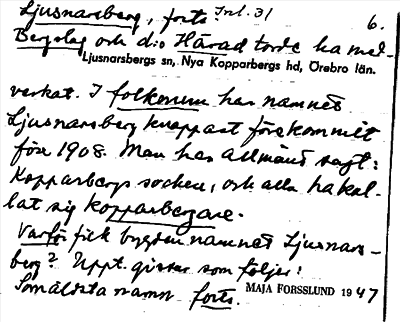 Ljusnarsberg, forts. Inl. 31 6.
Bergslag och d:o Härad torde ha med-
Ljusnarsbergs sn, Nya Kopparbergs hd, Örebro län.
verkat. I folkmun har namnet
Ljusnarsberg knappast förekommit
före 1908. Man har allmänt sagt:
Kopparbergs socken, och alla ha kal-
lat sig kopparbergare.
Varför fick bygden namnet Ljusnars-
berg? Uppt. gissar som följer:
Smältsta namn forts.
MAJA FORSSLUND 1947